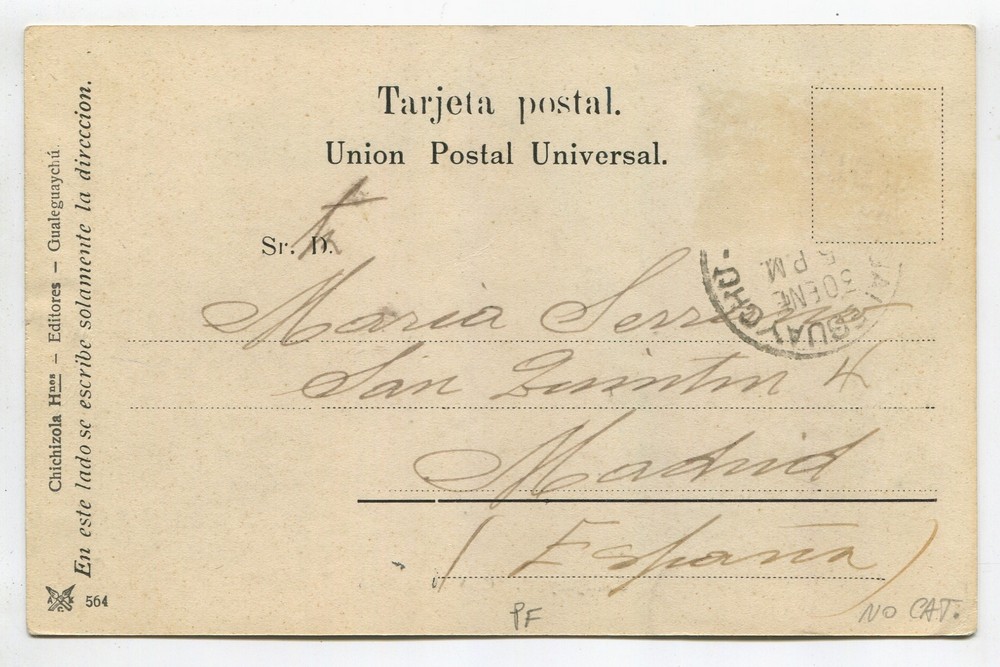 Tarjeta postal.
Union Postal Universal.
Sr. D.
Maria Serrano
San Quintin 4
Madrid
(España)
GUALEGUAYCHÚ.
30 ENE
5 P.M.
Chichizola Hnos – Editores – Gualeguaychú.
En este lado se escribe solamente la direccion.
564
PF
NO CAT.